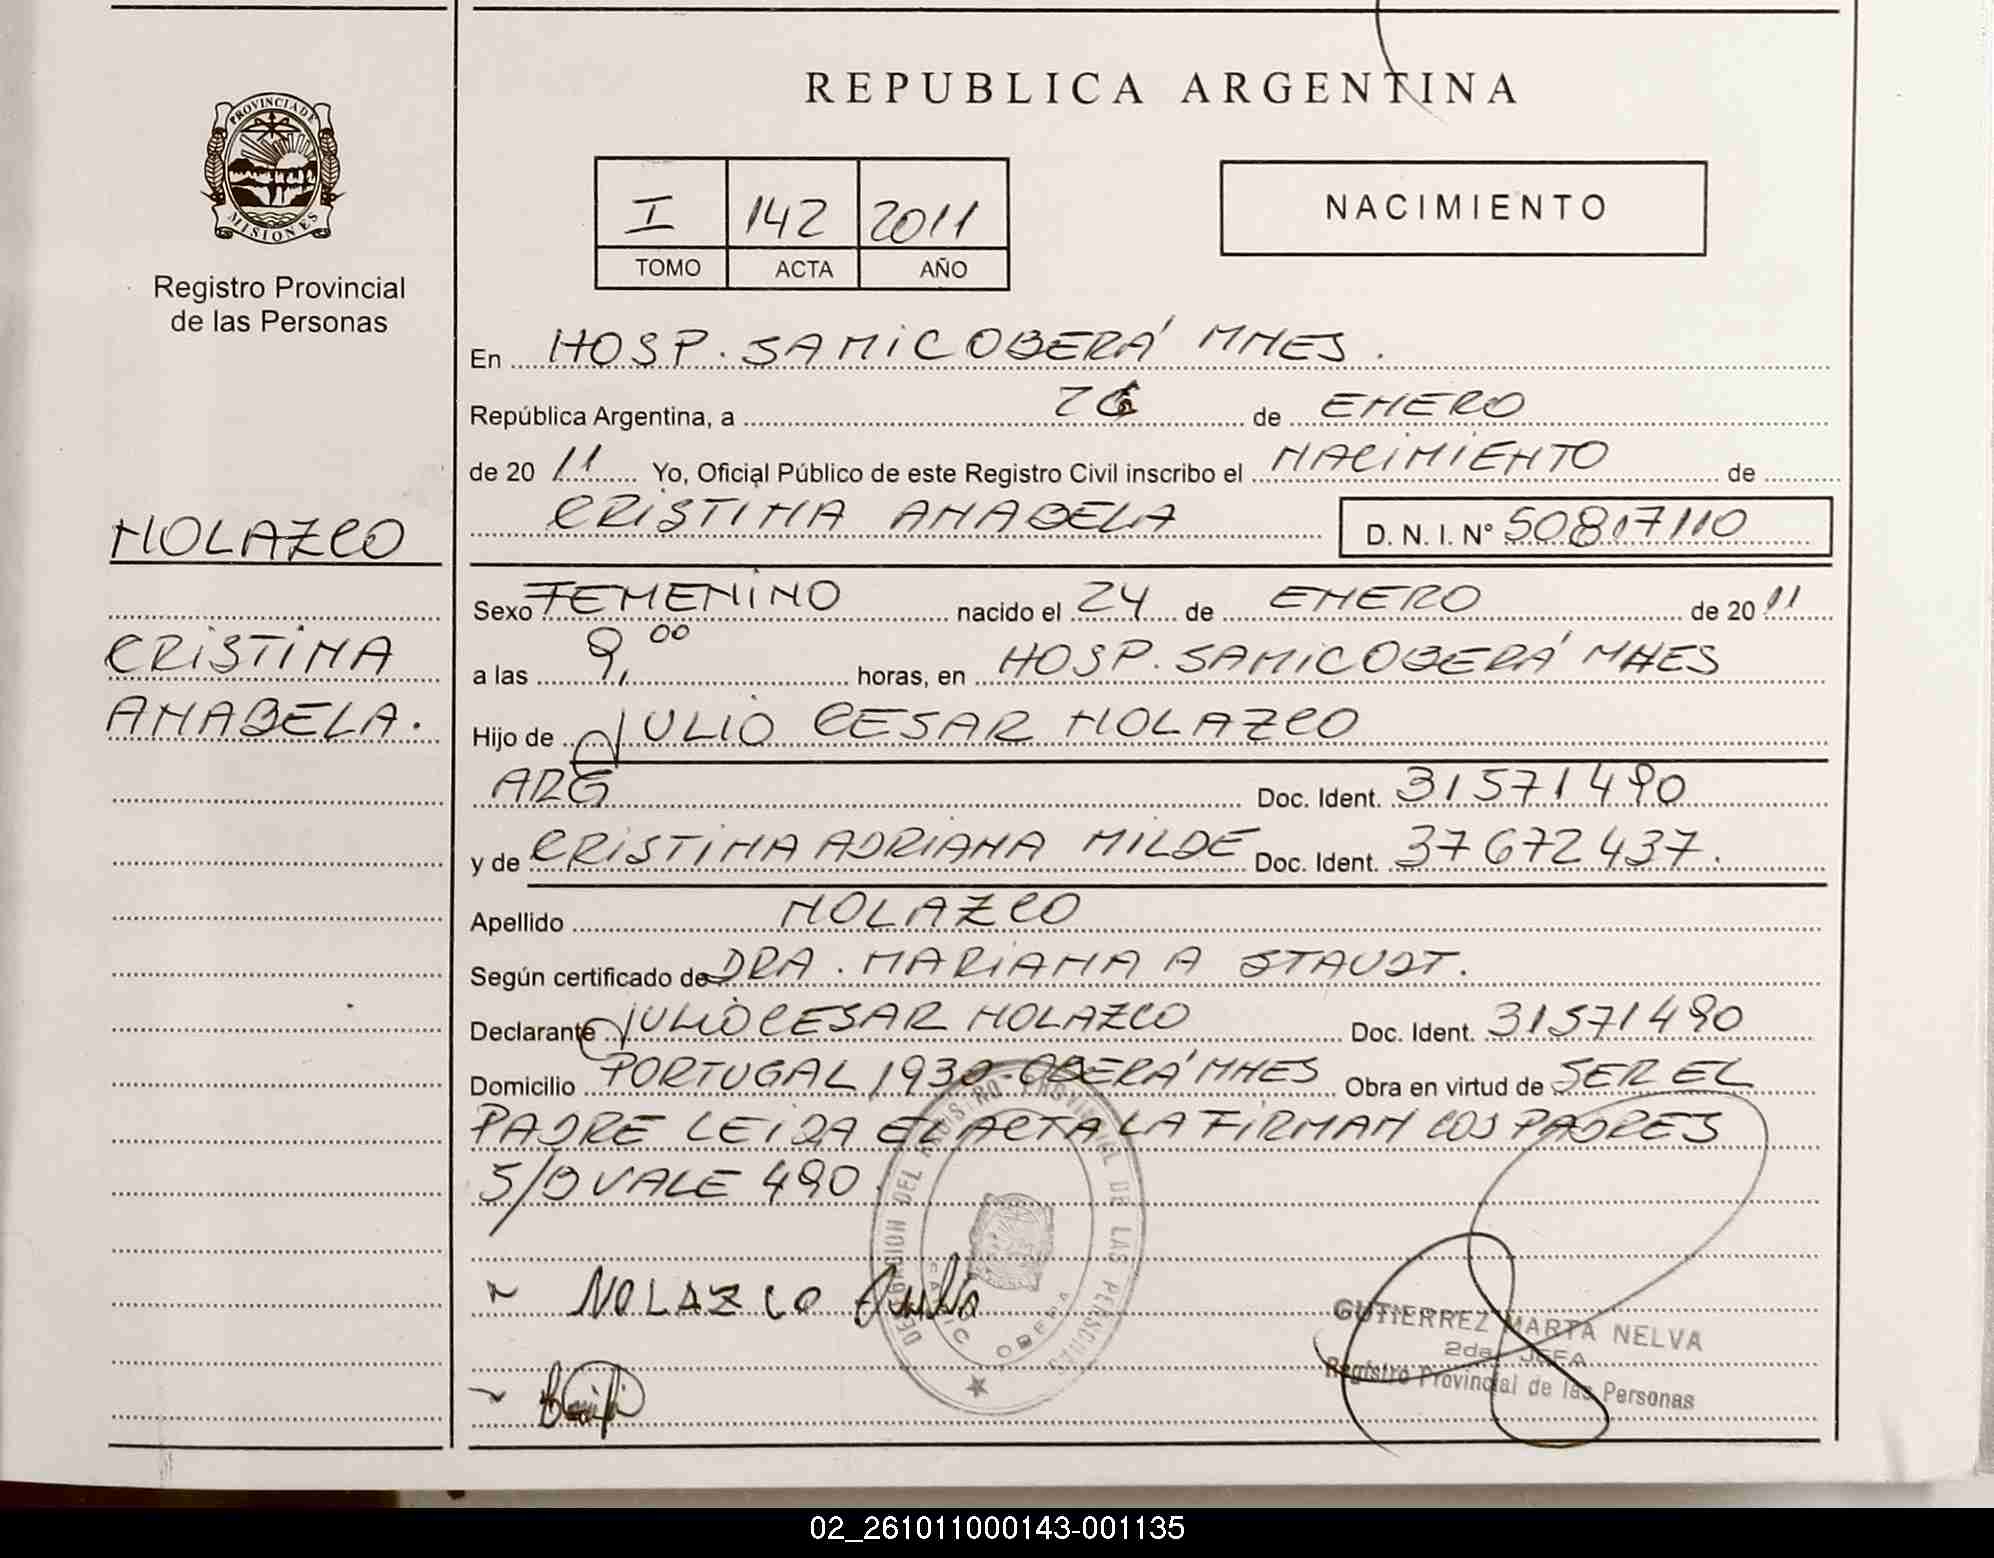 REPUBLICA ARGENTINA
PROVINCIA DE
MISIONES
Registro Provincial
de las Personas
I 142 2011
TOMO ACTA AÑO
NACIMIENTO
En HOSP. SAMIC OBERÁ MNES.
República Argentina, a 26 de ENERO
de 20 11 Yo, Oficial Público de este Registro Civil inscribo el NACIMIENTO de
CRISTINA ANABELA D. N. I. N° 50817110
NOLAZCO
CRISTINA
ANABELA.
Sexo FEMENINO nacido el 24 de ENERO de 20 11
a las 9,00 horas, en HOSP. SAMIC OBERÁ MNES
Hijo de JULIO CESAR NOLAZCO
ARG Doc. Ident. 31571490
y de CRISTINA ADRIANA MILDE Doc. Ident. 37672437.
Apellido NOLAZCO
Según certificado de DRA. MARIANA A STAUDT.
Declarante JULIO CESAR NOLAZCO Doc. Ident. 31571490
Domicilio PORTUGAL 1930 OBERÁ MNES Obra en virtud de SER EL
PADRE LEIDA EL ACTA LA FIRMAN LOS PADRES
S/B VALE 490.
NOLAZCO Julio
DELEGACION DEL REGISTRO PROVINCIAL DE LAS PERSONAS
OBERA
GUTIERREZ MARTA NELVA
2da. JEFA
Registro Provincial de las Personas
02_261011000143-001135